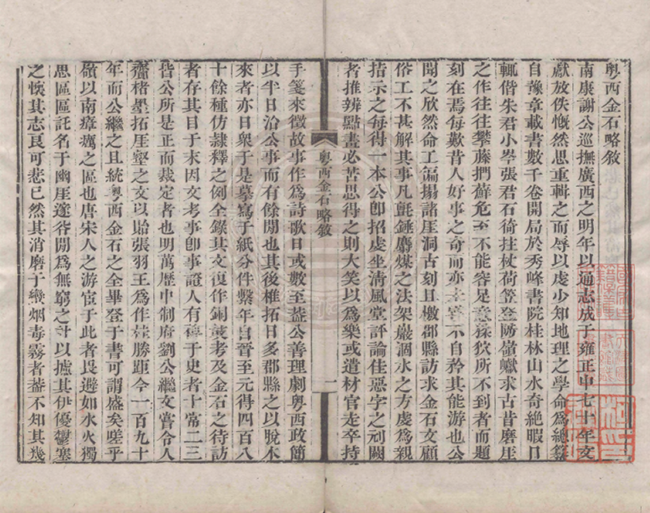 粵西金石略敘
南康謝公巡撫廣西之明年以通志成于雍正中七十年文
獻放佚慨然思重輯之而辱以虔少知地理之學命為總纂
自豫章載書數千卷開局於秀峰書院桂林山水奇絶暇日
輒偕朱君小岑張君石倚拄杖荷笠登陟嶺巘求古昔磨厓
之作往往攀藤捫葛危不能容足意猱狖所不到者而題
刻在焉每歎昔人好事之奇而亦未嘗不自矜其能游也公
聞之欣然命工徧搨諸厓洞古刻且檄郡縣訪求金石文顧
俗工不甚解其事凡氈錘麝煤之法架巖涸水之方虔為親
指示之每得一本公卽招虔坐清風堂評論佳惡字之刓闕
者推辨點畫必苦思得之則大笑以為樂或遣材官走卒持
粵西金石略敘
一
手箋來徵故事作為詩歌日或數至蓋公善理劇粵西政簡
以半日治公事而有餘閒也其後椎拓日多郡縣之以脫本
來者亦日衆于是摹寫于紙分件繫年自晉至元得四百八
十餘種仿隸釋之例全錄其文復作銅鼓考及金石之待訪
者存其目于末因文考事卽事證人有裨于史者十常二三
皆公所是正而裁定者也明萬歷中制府劉公繼文嘗令人
齎楮墨拓厓壑之文以貽張羽王為作桂勝距今一百九十
年而公繼之且統粵西金石之全畢登于書可謂盛矣嗟乎
嶺以南瘴癘之區也唐宋人之游宦于此者畏避如水火獨
思區區託名于幽厓邃谷閒為無窮之計以攄其伊優鬱塞
之懷其志良可悲已然其消磨于蠻烟毒霧者葢不知其幾